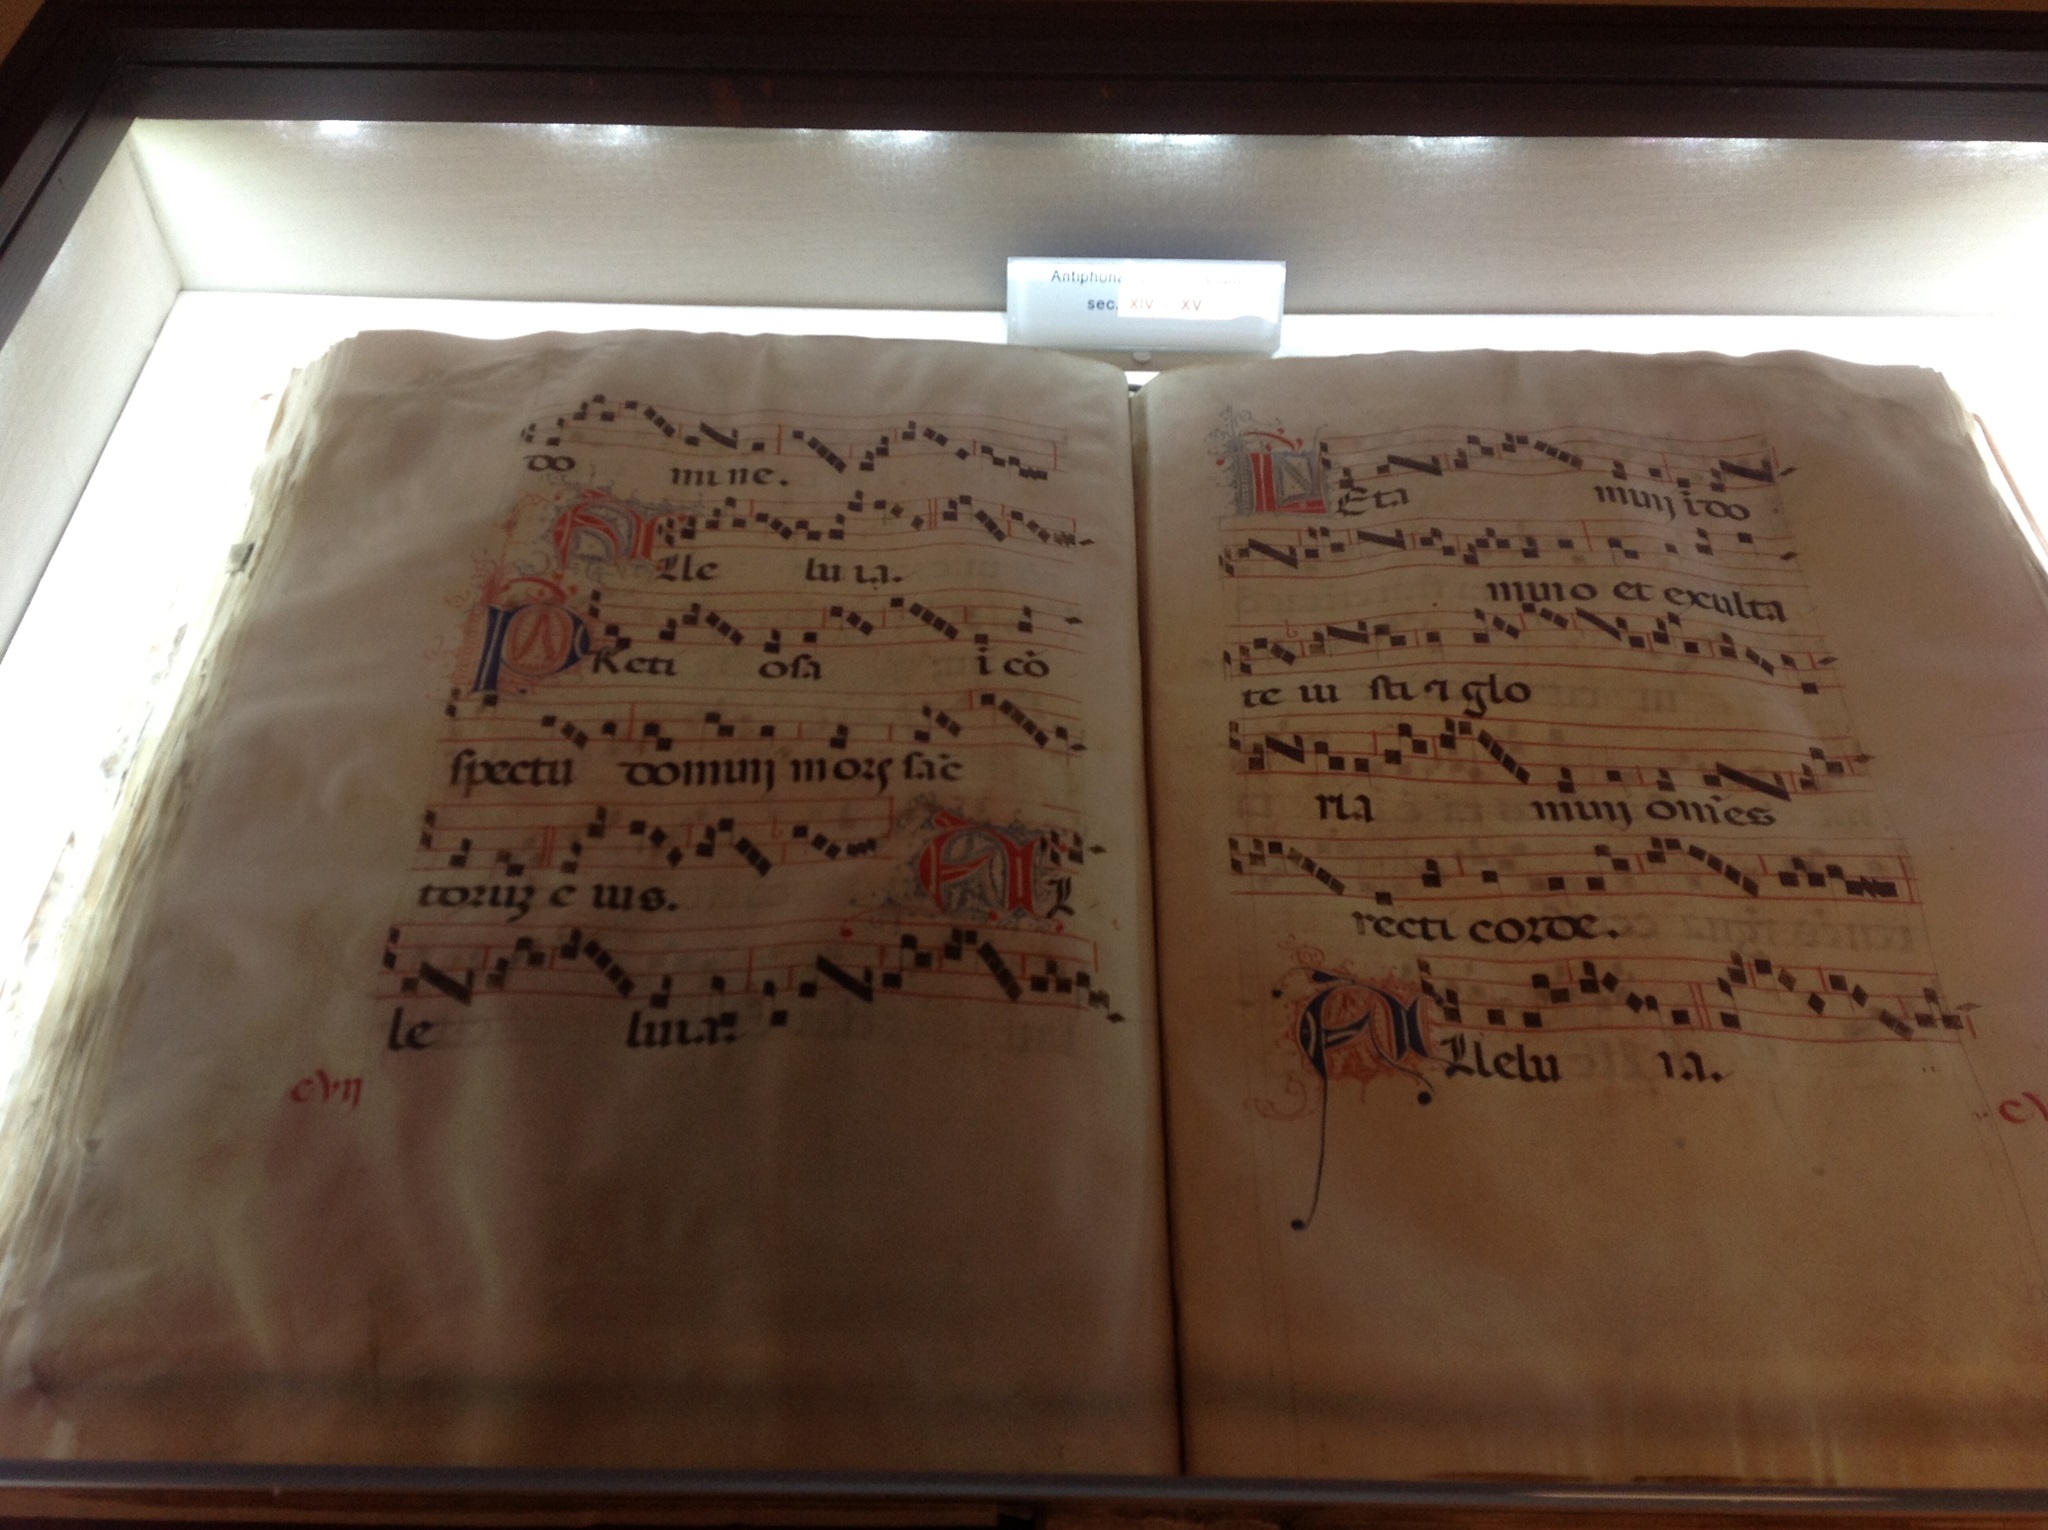 sec. XIV XV
do mine.
Alle luia.
Preti osa i cō
spectu domini mors sāc
toruz e ius.
Al
le luia.
cvij
Leta mini i do
mino et exulta
te iu sti ⁊ glo
ria mini om̄es
recti corde.
Allelu ia.